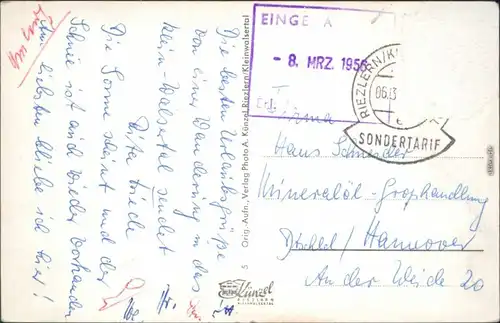 Die besten Urlaubsgrüße
von einer Wanderung in das
Klein-Walsertal sendet
Die Sonne scheint und der
Schnee ist auch wieder vorhanden
Am liebsten bliebe ich hier!
5 Orig.-Aufn., Verlag Photo A. Künzel Riezlern/Kleinwalsertal
Künzel
RIEZLERN
KLEINWALSERTAL
EINGE A
- 8. MRZ. 1956
Erl.
RIEZLERN/KL
06.
SONDERTARIF
Firma
Hans Schneider
Mineralöl-Großhandlung
Hannover
An der Weide 20